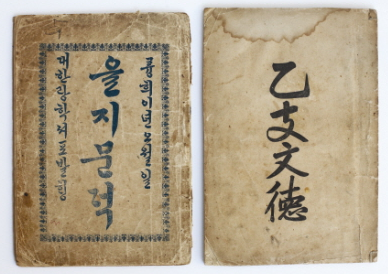 륭희이년오월일
을지문덕
대한광학셔포발힝
乙支文德